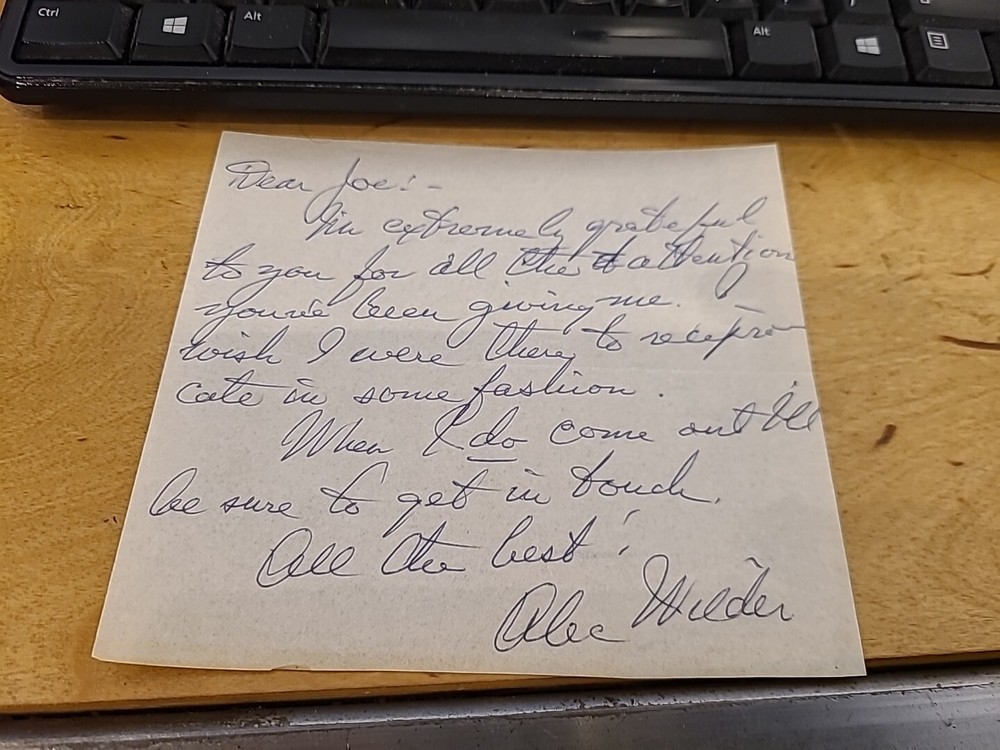 Ctrl Alt Alt
Dear Joe:-
I'm extremely grateful
to you for all the attention
you've been giving me. I
wish I were there to recipro-
cate in some fashion.
When I do come out I'll
be sure to get in touch.
All the best!
Alec Wilder